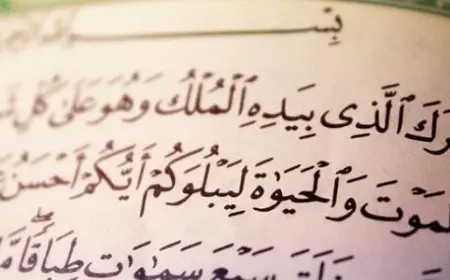 بِسْـ
رَكَ ٱلَّذِى بِيَدِهِ ٱلْمُلْكُ وَهُوَ عَلَىٰ كُلِّ
لْمَوْتَ وَٱلْحَيَوٰةَ لِيَبْلُوَكُمْ أَيُّكُمْ أَحْسَنُ
خَلَقَ سَبْعَ سَمَٰوَٰتٍ طِبَاقًا مَّا